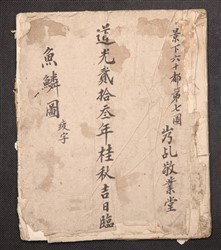 業下六十都第七圖
敬業堂
道光貳拾叁年桂秋吉日臨
魚鱗圖